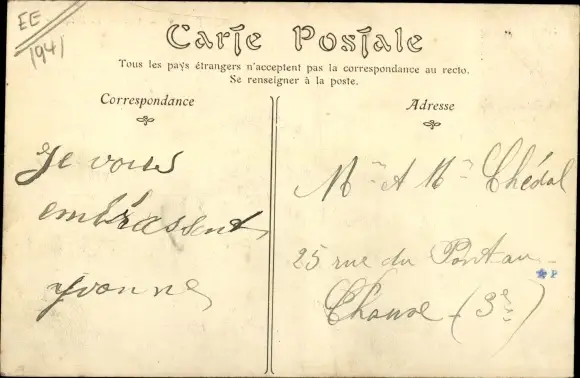 EE
1941
Carte Postale
Tous les pays étrangers n'acceptent pas la correspondance au recto.
Se renseigner à la poste.
Correspondance
Je vous
embrassent
Yvonne
Adresse
Mr et Mme Chédal
25 rue du Pont au
Choux (3e)